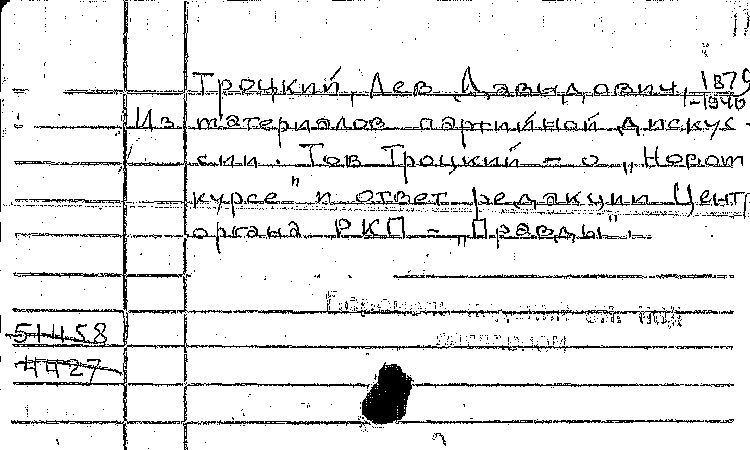 Троцкий, Лев Давыдович, 1879
-1940
Из материалов партийной дискус-
сии. Тов Троцкий – о „Новом
курсе" и ответ редакции Центр
органа РКП – „Правды".
51458
4427